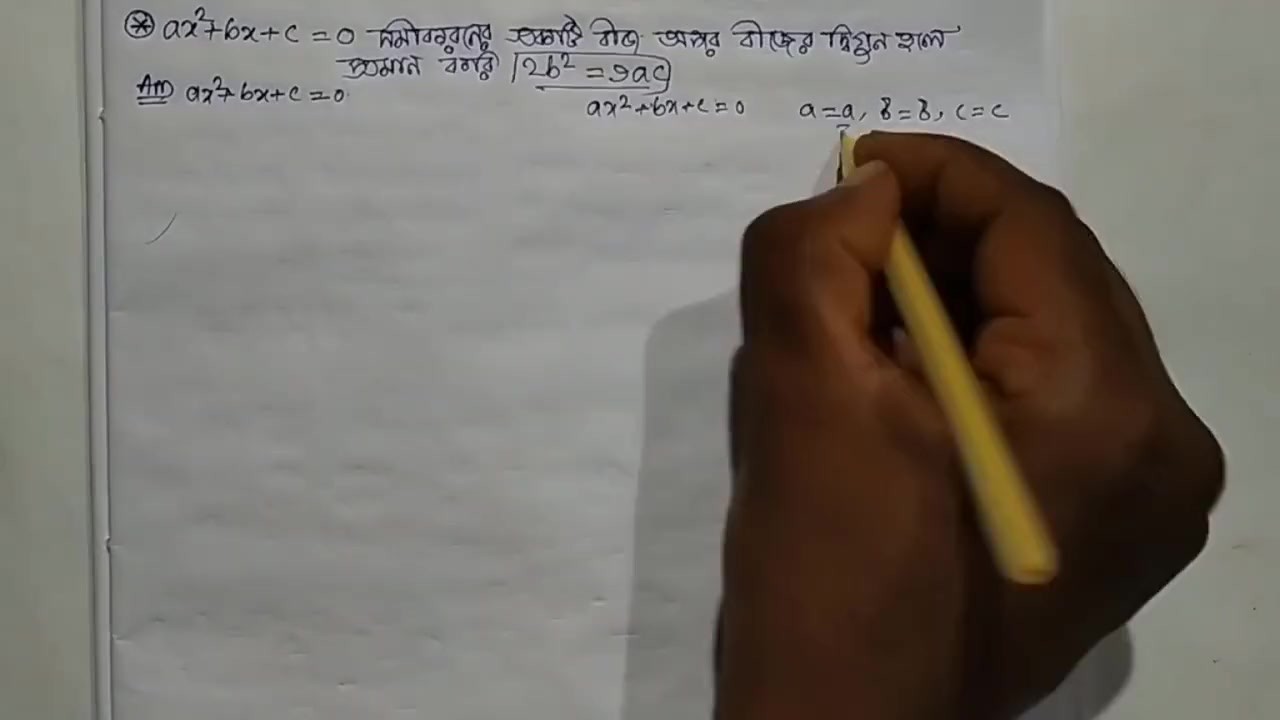 * ax²+bx+c=0 সমীকরনের একটি বীজ অপর বীজের দ্বিগুন হলে
প্রমান করি 2b² = 9ac
Ans ax²+bx+c=0
ax²+bx+c=0 a=a, b=b, c=c